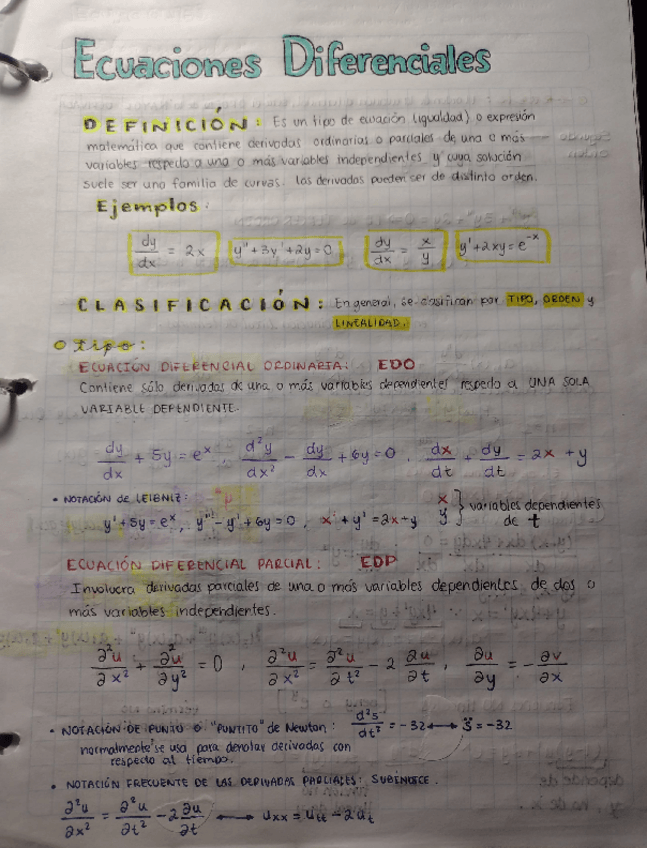 Ecuaciones Diferenciales
DEFINICIÓN: Es un tipo de ecuación (igualdad) o expresión
matemática que contiene derivadas ordinarias o parciales de una o más
variables respecto a una o más variables independientes y cuya solución
suele ser una familia de curvas. Las derivadas pueden ser de distinto orden.
Ejemplos:
dy/dx = 2x y''+3y'+2y=0 dy/dx = x/y y'+2xy=e^-x
CLASIFICACIÓN: En general, se clasifican por TIPO, ORDEN y
LINEALIDAD.
O tipo:
ECUACIÓN DIFERENCIAL ORDINARIA: EDO
Contiene sólo derivadas de una o más variables dependientes respecto a UNA SOLA
VARIABLE DEPENDIENTE.
dy/dx + 5y = e^x, d²y/dx² - dy/dx + 6y = 0, dx/dt + dy/dt = 2x + y
• NOTACIÓN de LEIBNIZ:
y'+5y=e^x, y''-y'+6y=0, x'+y'=2x+y x y } variables dependientes
de t
ECUACIÓN DIFERENCIAL PARCIAL: EDP
Involucra derivadas parciales de una o más variables dependientes de dos o
más variables independientes.
∂²u/∂x² + ∂²u/∂y² = 0, ∂²u/∂x² = ∂²u/∂t² - 2 ∂u/∂t, ∂u/∂y = - ∂v/∂x
• NOTACIÓN DE PUNTO o "PUNTITO" de Newton: d²s/dt² = -32 ⟷ s̈ = -32
normalmente se usa para denotar derivadas con
respecto al tiempo.
• NOTACIÓN FRECUENTE DE LAS DERIVADAS PARCIALES: SUBÍNDICE.
∂²u/∂x² = ∂²u/∂t² - 2 ∂u/∂t ⟷ uxx = utt - 2ut